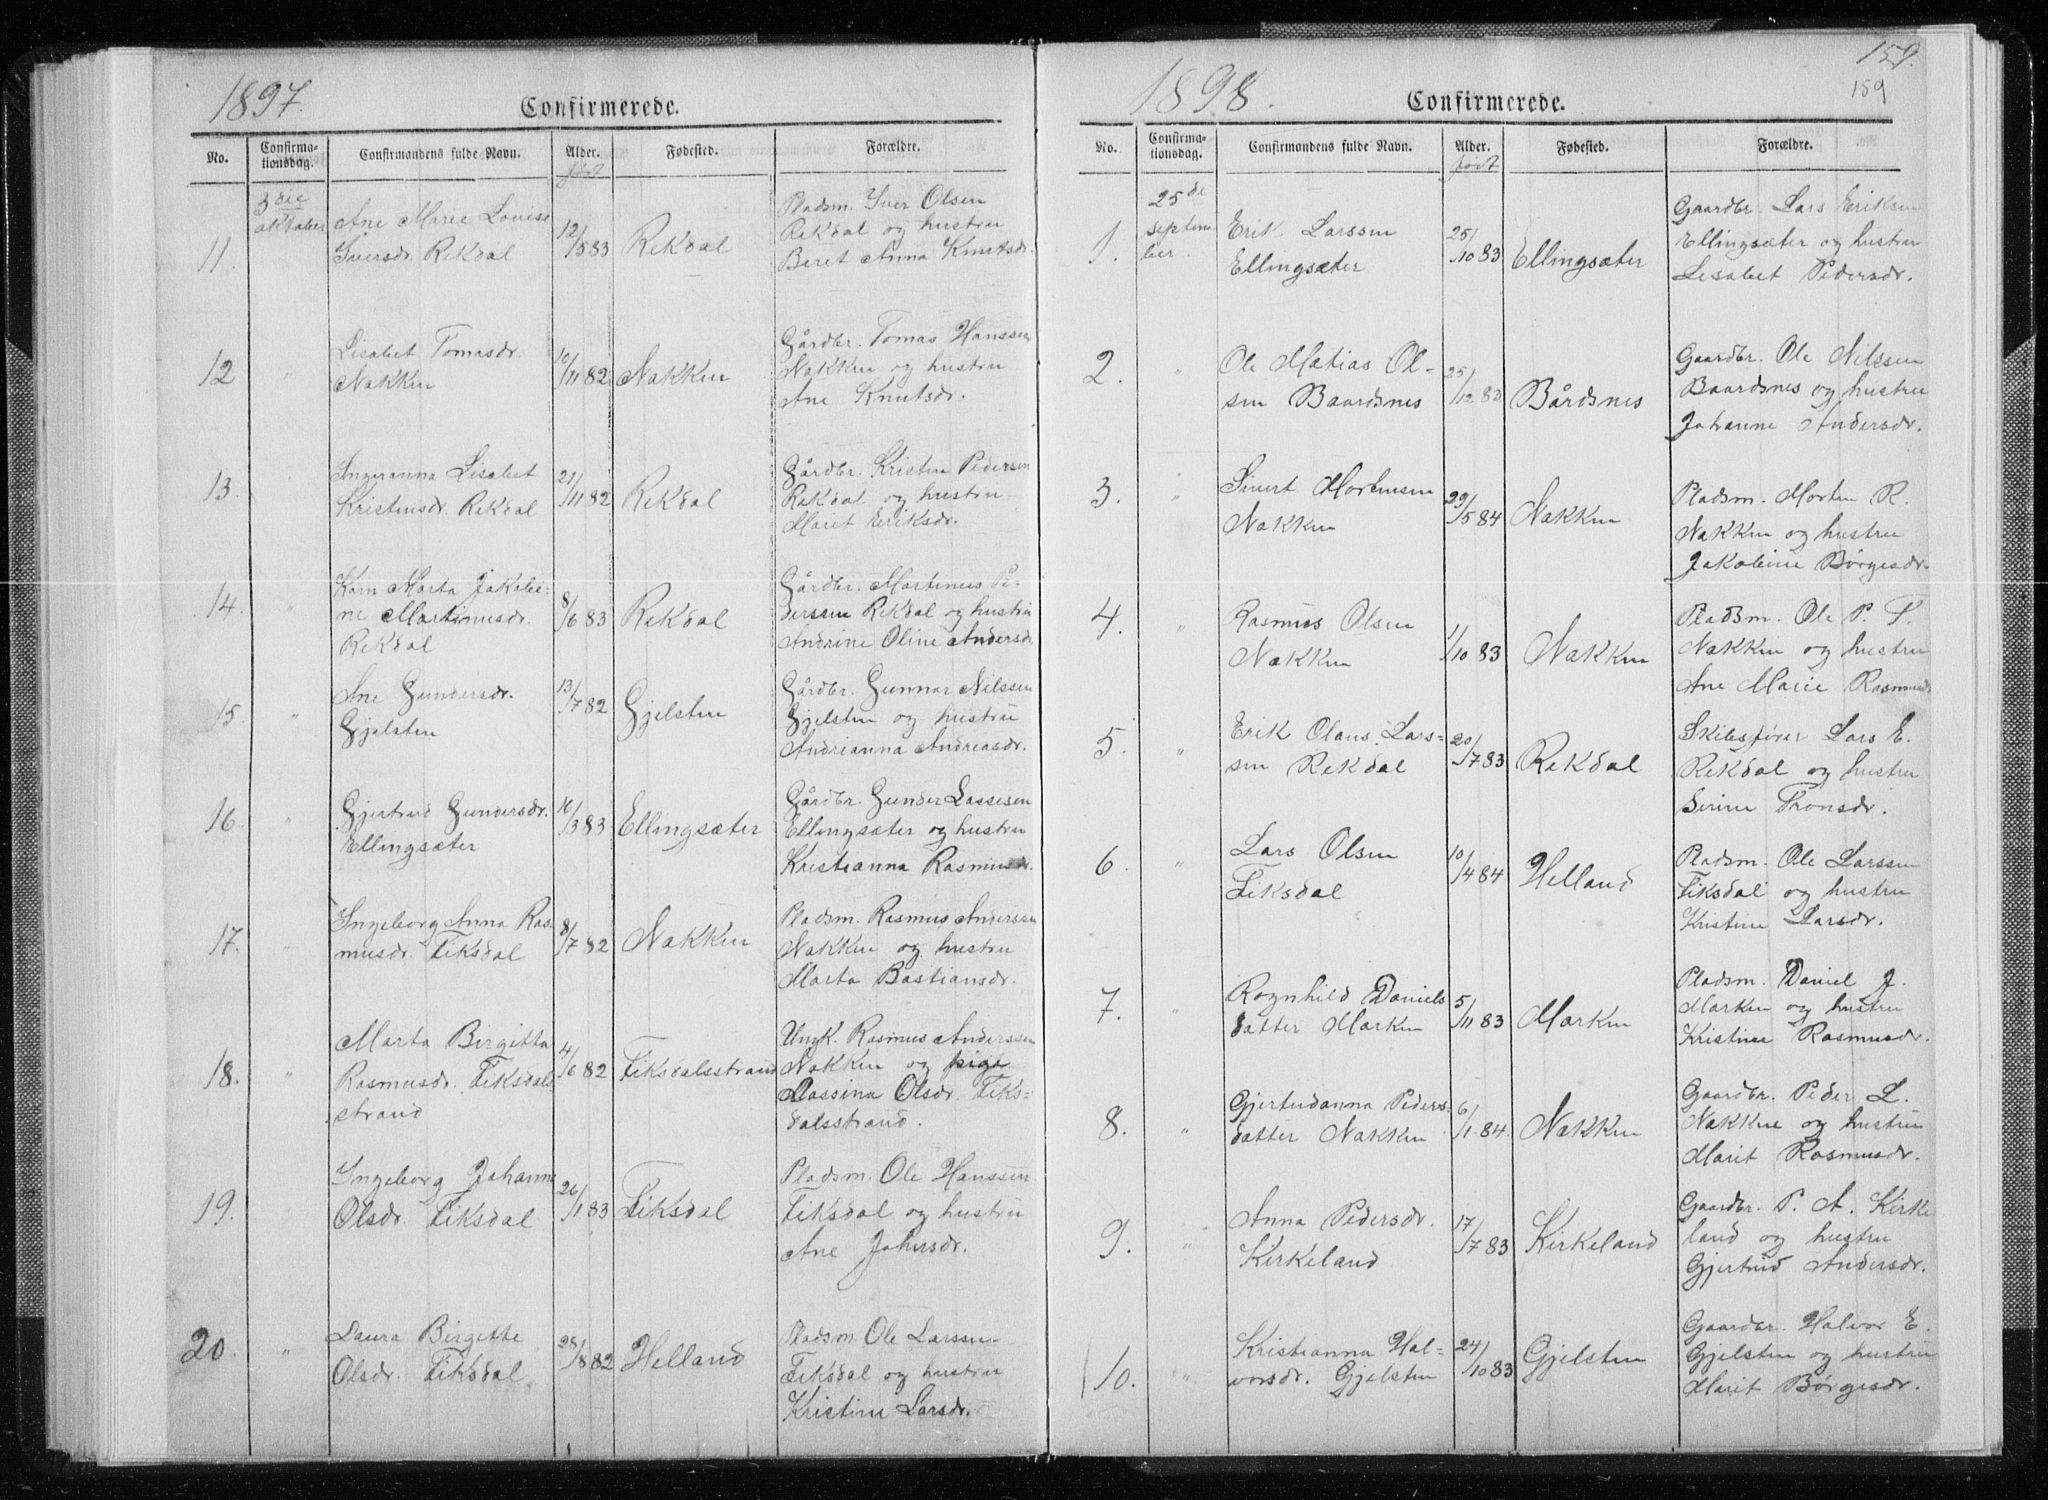 1897.
Confirmerede.
No.
Confirma-
tionsdag.
Confirmandens fulde Navn.
Alder.
født
Fødested.
Forældre.
11.
3die
oktober
Ane Marie Lovise
Iversdr. Rekdal
12/5 83
Rekdal
Pladsm. Iver Olsen
Rekdal og hustru
Beret Anna Knutsdr.
12
"
Lisabet Tomasdr.
Nakken
10/11 82
Nakken
Gårdbr. Tomas Hanssen
Nakken og hustru
Ane Knutsdr.
13.
Ingeranna Lisabet
Kristensdr. Rekdal
21/11 82
Rekdal
Gårdbr. Kristen Pedersen
Rekdal og hustru
Marit Eriksdr.
14.
"
Karn Marta Jakobi-
ne Martinusdr.
Rekdal
8/6 83
Rekdal
Gårdbr. Martinus Pe-
dersen Rekdal og hustru
Andrine Oline Andersdr
15.
"
Ane Gundersdr.
Gjelsten
13/7 82
Gjelsten
Gårdbr. Gunnar Nilssen
Gjelsten og hustru
Andrianna Andreasdr.
16
"
Gjertrud Gundersdr.
Ellingsæter
16/3 83
Ellingsæter
Gårdbr. Gunder Lassesen
Ellingsæter og hustru
Kristianna Rasmusdr.
17.
"
Ingeborg Anna Ras-
musdr. Fiksdal
8/7 82
Nakken
Pladsm. Rasmus Anderssen
Nakken og hustru
Marta Bastiansdr.
18.
"
Marta Birgitta
Rasmusdr. Fiksdals
strand
4/6 82
Fiksdalsstrand
Ungk. Rasmus Anderssen
Nakken og pige
Massina Olsdr. Fiks-
dalsstrand.
19.
Ingeborg Johanne
Olsdr. Fiksdal
26/1 83
Fiksdal
Pladsm. Ole Hanssen
Fiksdal og hustru
Ane Johnsdr.
20.
"
Laura Birgitte
Olsdr. Fiksdal
28/8 82
Helland
Pladsm. Ole Larssen
Fiksdal og hustru
Kristine Larsdr.
159.
159
1898.
Confirmerede.
No.
Confirma-
tionsdag.
Confirmandens fulde Navn.
Alder.
født
Fødested.
Forældre.
1.
25de
septem
ber.
Erik Larssen
Ellingsæter
25/10 83
Ellingsæter
Gaardbr. Lars Eriksen
Ellingsæter og hustru
Lisabet Pedersdr.
2.
"
Ole Matias Ol-
sen Baardsnes
25/12 83
Bårdsnes
Gaardbr. Ole Nilssen
Baardsnes og hustru
Johanne Andersdr.
3.
"
Sivert Mortensen
Nakken
29/5 84
Nakken
Pladsm. Morten R.
Nakken og hustru
Jakobine Børgesdr.
4.
"
Rasmus Olsen
Nakken
1/10 83
Nakken
Pladsm. Ole P. T.
Nakken og hustru
Ane Marie Rasmusdr
5.
"
Erik Olaus Lars-
sen Rekdal
20/7 83
Rekdal
Skibsfører Lars E.
Rekdal og hustru
Serine Tronsdr.
6.
"
Lars Olsen
Fiksdal
10/4 84
Helland
Pladsm. Ole Larssen
Fiksdal og hustru
Kristine Larsdr.
7.
"
Ragnhild Daniels
datter Marken
5/11 83
Marken
Pladsm. Daniel J.
Marken og hustru
Kristine Rasmusdr.
8.
"
Gjertrudanna Peders-
datter Nakken
6/1 84
Nakken
Gaardbr. Peder L.
Nakken og hustru
Marit Rasmusdr.
9.
"
Anna Pedersdr.
Kirkeland
17/7 83
Kirkeland
Gaardbr. P. A. Kirke
land og hustru
Gjertrud Andersdr.
10.
"
Kristianna Hal-
vorsdr. Gjelsten
24/10 83
Gjelsten
Gaardbr. Halvor E.
Gjelsten og hustru
Marit Børgesdr.